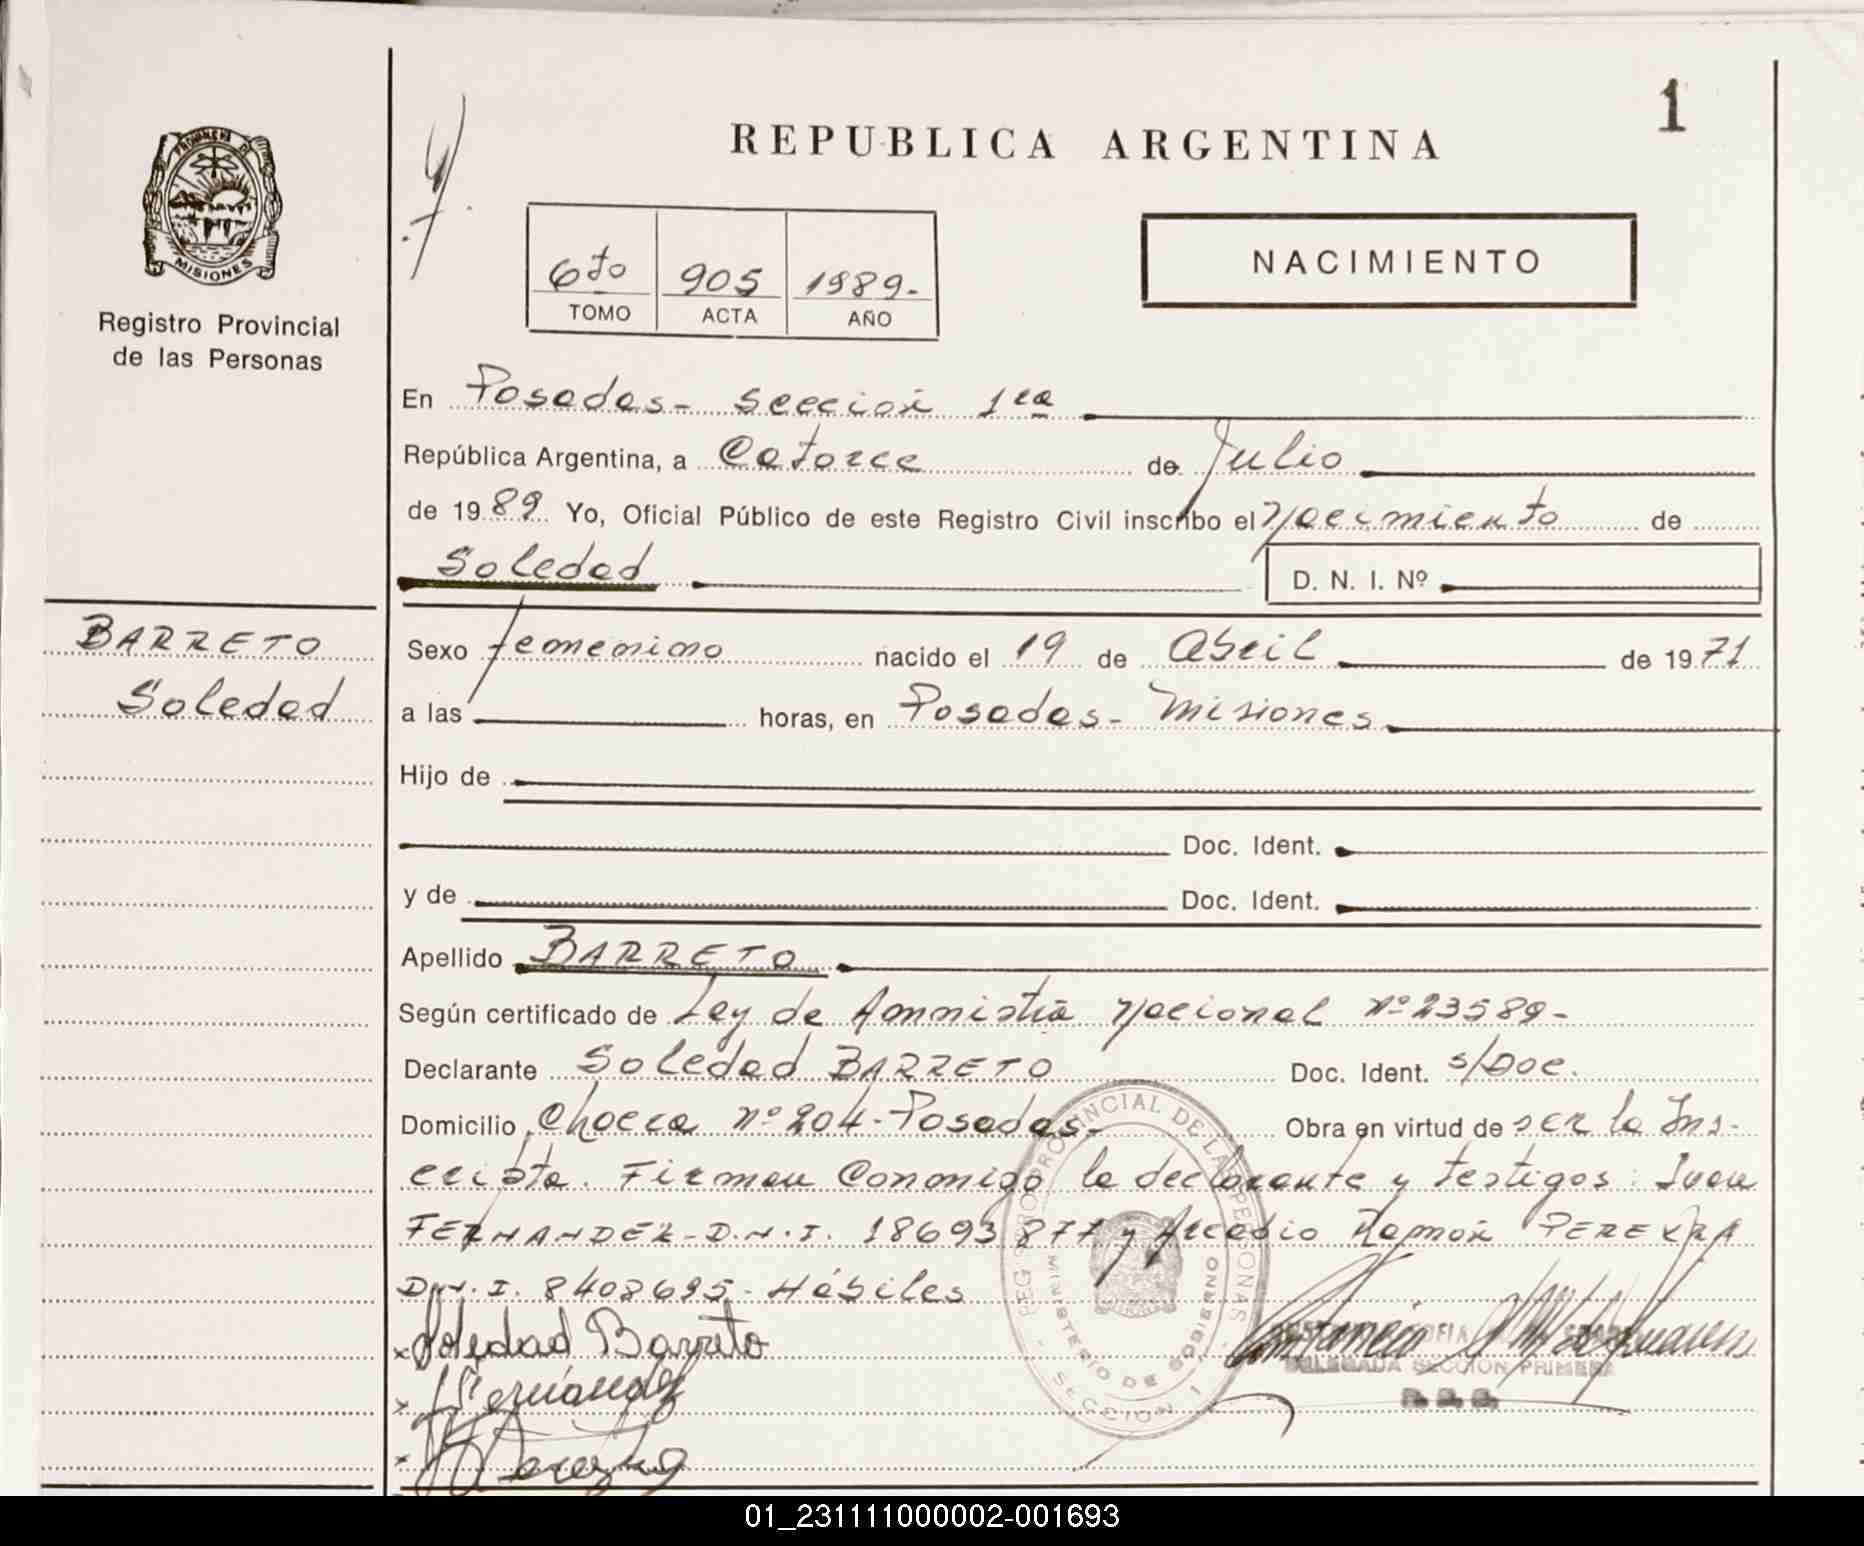 1
REPUBLICA ARGENTINA
PROVINCIA DE
MISIONES
Registro Provincial
de las Personas
6to 905 1989-
TOMO ACTA AÑO
NACIMIENTO
En Posadas- sección 1ra
República Argentina, a Catorce de Julio
de 1989. Yo, Oficial Público de este Registro Civil inscribo el Nacimiento de
Soledad D. N. I. Nº
BARRETO
Soledad
Sexo femenino nacido el 19 de Abril de 1971
a las horas, en Posadas- Misiones
Hijo de
Doc. Ident.
y de Doc. Ident.
Apellido BARRETO
Según certificado de Ley de Amnistia Nacional Nº 23589-
Declarante Soledad BARRETO Doc. Ident. s/Doc.
Domicilio Chacra nº 204-Posadas- Obra en virtud de ser la Ins-
cripta. Firman Conmigo la declarante y testigos: Juan
FERNANDEZ-D.N.I. 18693877 y Arcadio Ramón PEREYRA
D.N.I. 8408695- Hábiles
REG PROVINCIAL DE LAS PERSONAS
MINISTERIO DE GOBIERNO
SECCION 1
x Soledad Barreto
x Fernández
x Pereyra
DELEGADA SECCION PRIMERA
01_231111000002-001693